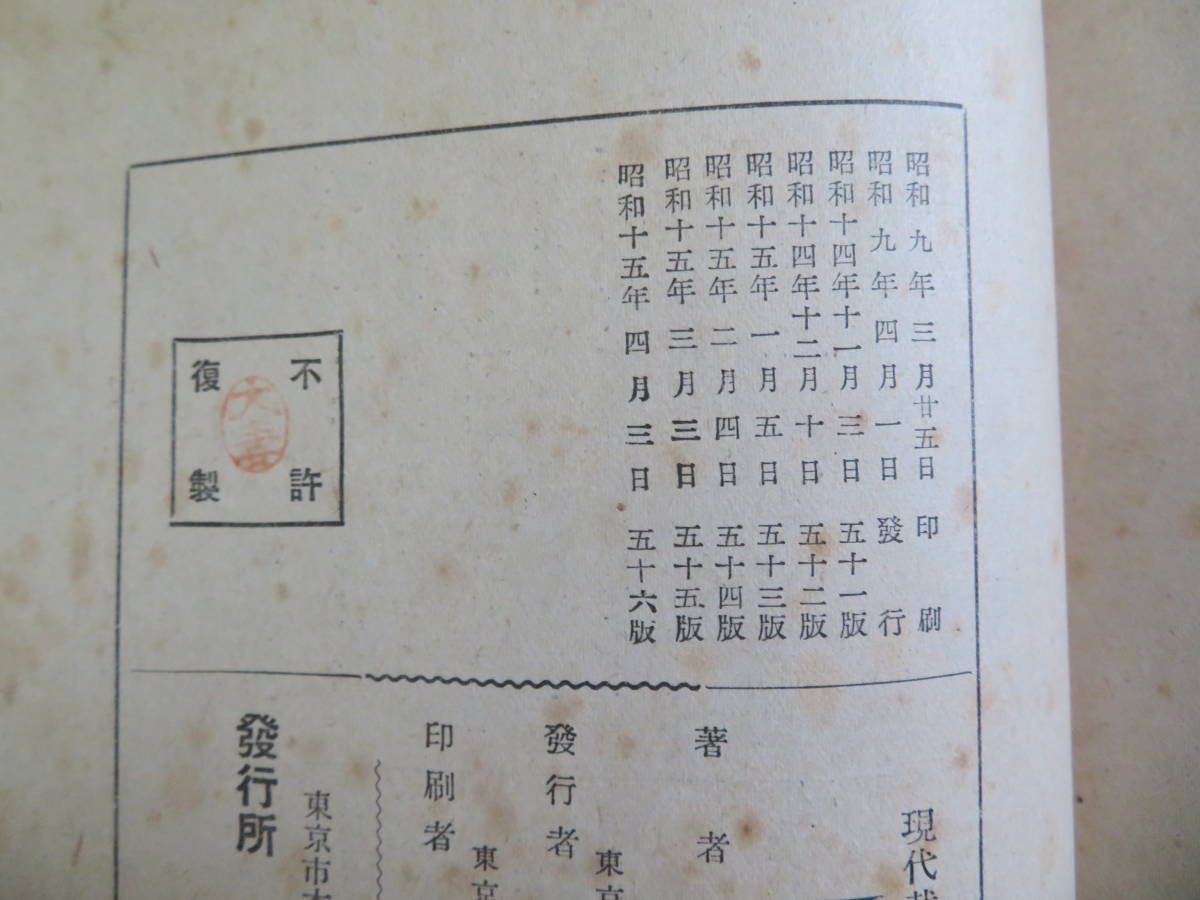 昭和九年三月廿五日印刷
昭和九年四月一日發行
昭和十四年十一月三日五十一版
昭和十四年十二月十日五十二版
昭和十五年一月五日五十三版
昭和十五年二月四日五十四版
昭和十五年三月三日五十五版
昭和十五年四月三日五十六版
不許
復製
現代裁
著者
發行者
東京
印刷者
東京
東京市本
發行所